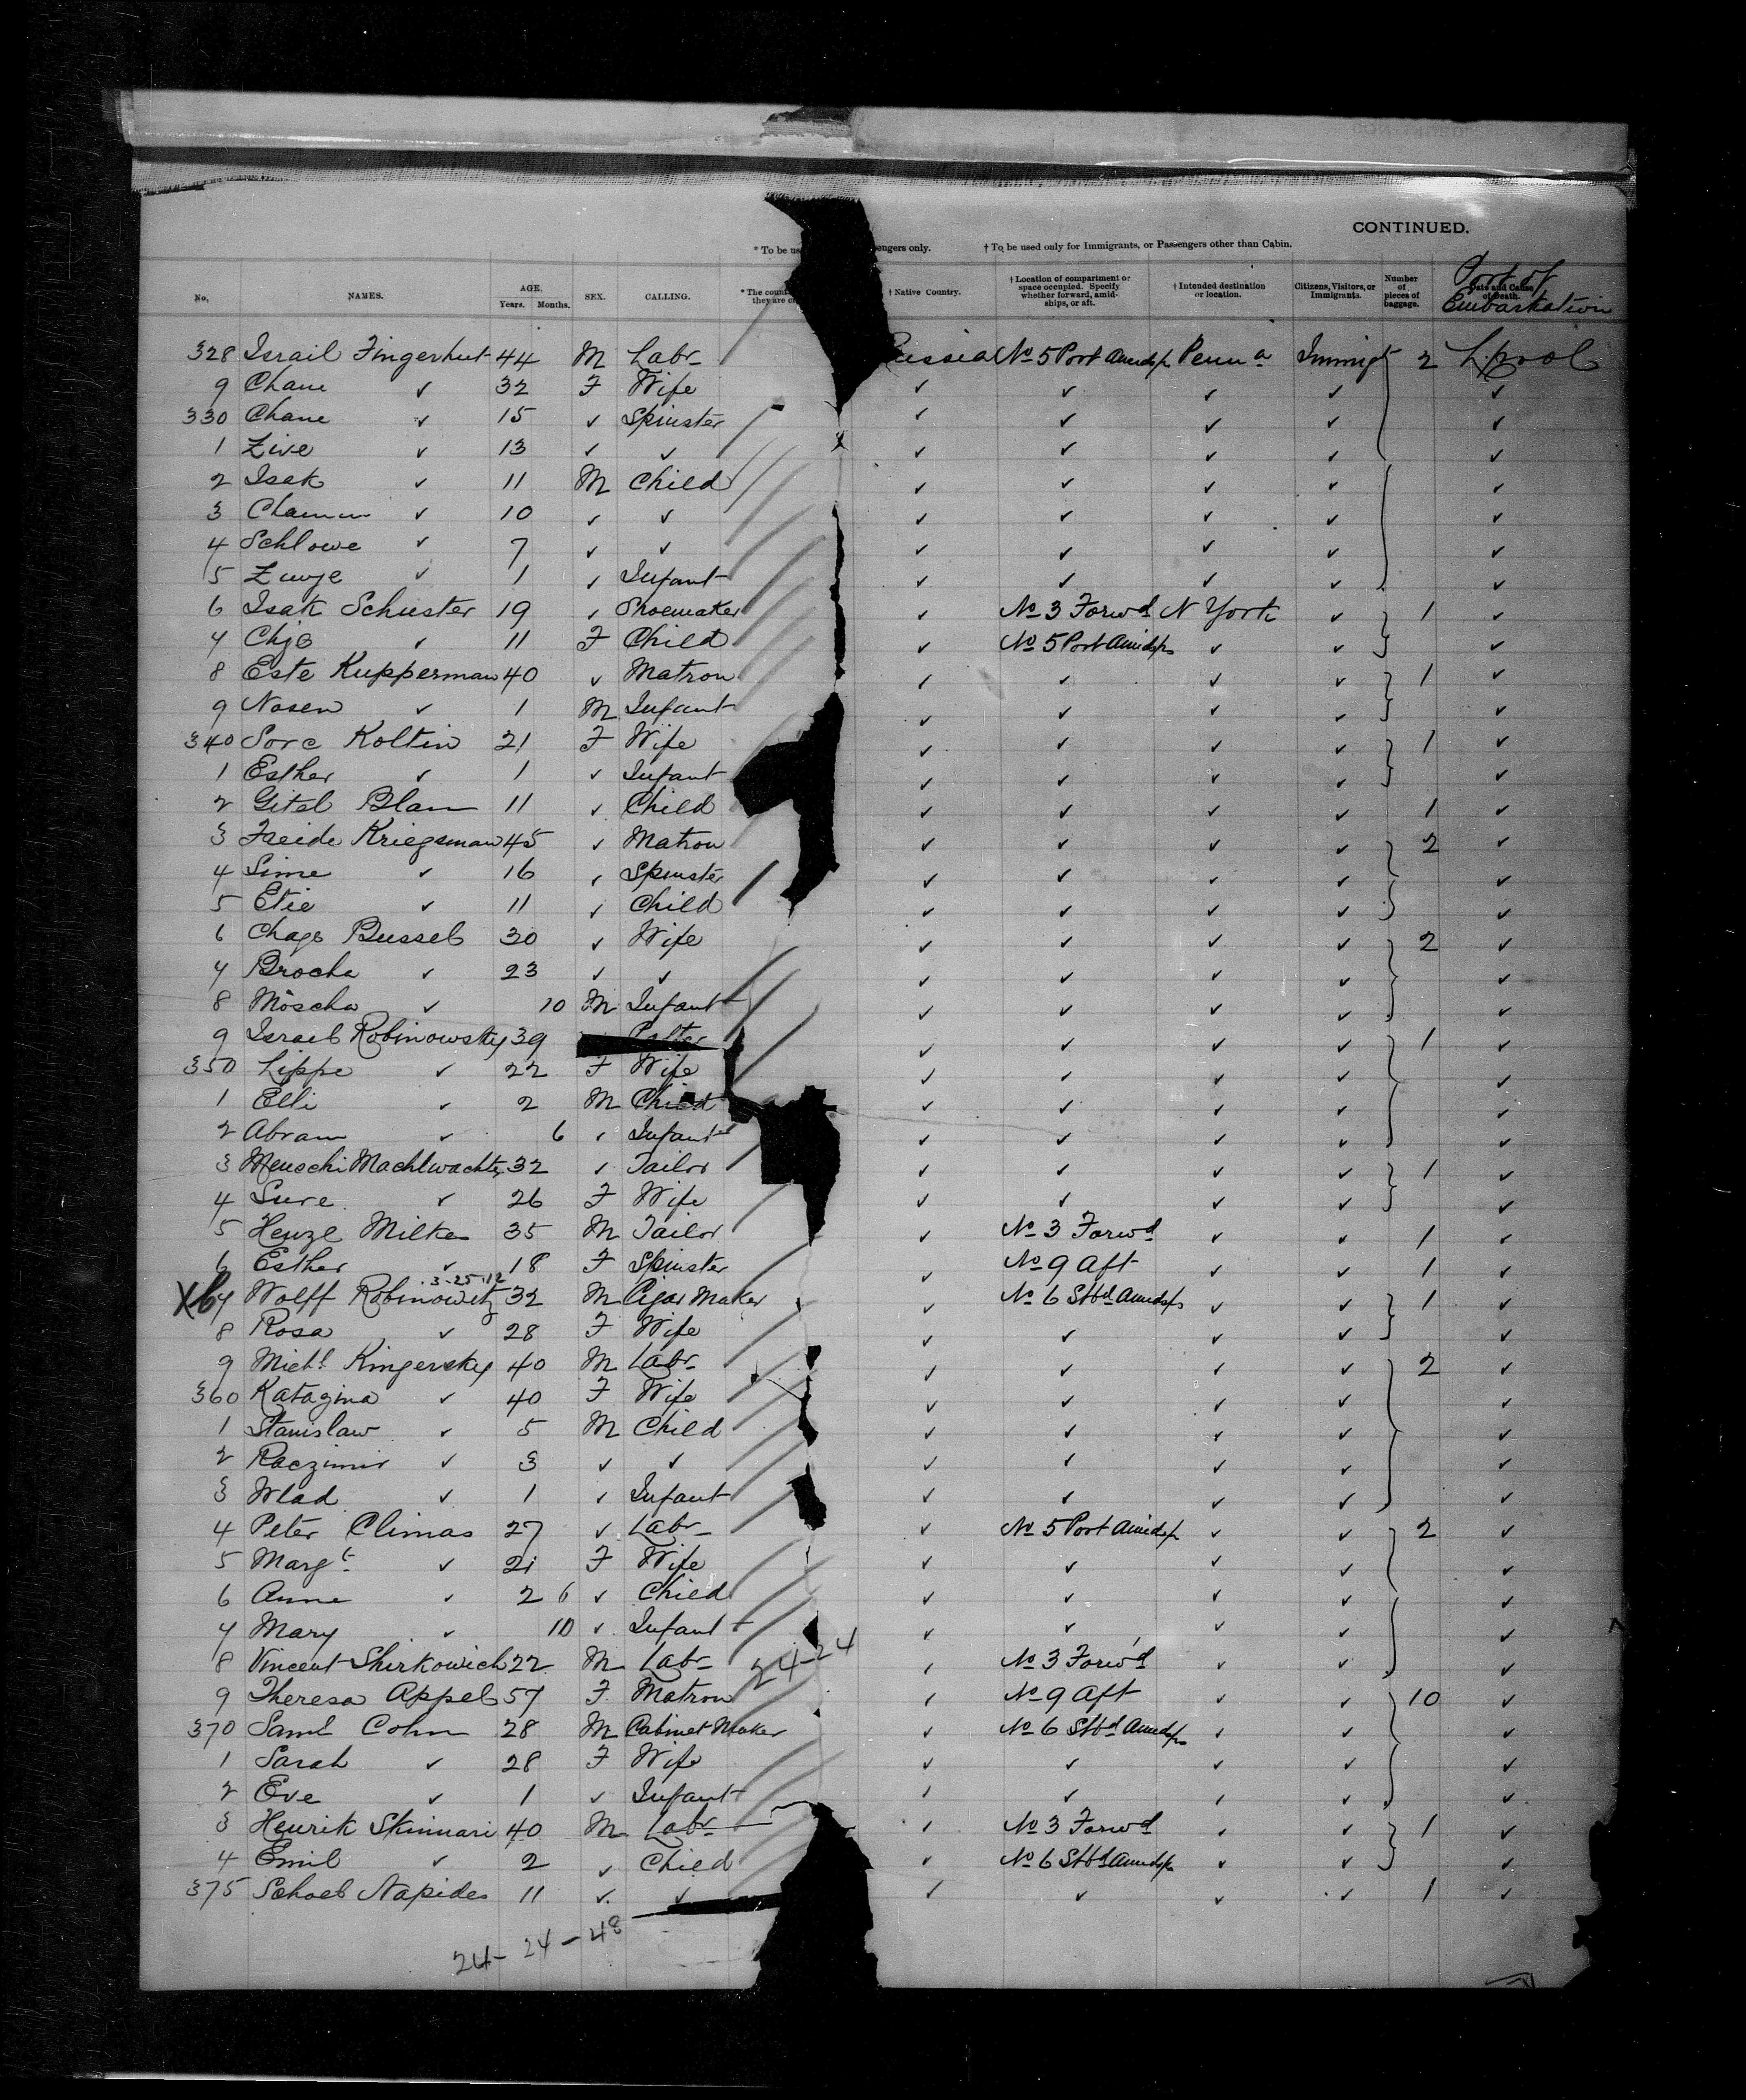 CONTINUED.
* To be us engers only. † To be used only for Immigrants, or Passengers other than Cabin.
No. NAMES. AGE. Years. Months. SEX. CALLING. * The count they are ci † Native Country. † Location of compartment or space occupied. Specify whether forward, amidships, or aft. † Intended destination or location. Citizens, Visitors, or Immigrants. Number of pieces of baggage. Date and Cause of Death. Port of Embarkation
328 Israil Fingerhut 44 M Labr ussia No 5 Port Amidsp Penna Immigt 2 L.pool
9 Chane ✓ 32 F Wife ✓ ✓ ✓ ✓ ✓
330 Chane ✓ 15 ✓ Spinster ✓ ✓ ✓ ✓ ✓
1 Zive ✓ 13 ✓ ✓ ✓ ✓ ✓ ✓ ✓
2 Isak ✓ 11 M Child ✓ ✓ ✓ ✓ ✓
3 ✓ 10 ✓ ✓ ✓ ✓ ✓ ✓ ✓
4 Schlowe ✓ 7 ✓ ✓ ✓ ✓ ✓ ✓ ✓
5 ✓ 1 ✓ Infant ✓ ✓ ✓ ✓ ✓
6 Isak Schuster 19 ✓ Shoemaker ✓ No 3 Forwd N York ✓ 1 ✓
7 ✓ 11 F Child ✓ No 5 Port Amidsps ✓ ✓ ✓
8 Este Kupperman 40 ✓ Matron ✓ ✓ ✓ ✓ 1 ✓
9 Nosen ✓ 1 M Infant ✓ ✓ ✓ ✓ ✓
340 Sore Koltin 21 F Wife ✓ ✓ ✓ ✓ 1 ✓
1 Esther ✓ 1 ✓ Infant ✓ ✓ ✓ ✓ ✓
2 Gitel Blam 11 ✓ Child ✓ ✓ ✓ ✓ 1 ✓
3 Freide Kriegsman 45 ✓ Matron ✓ ✓ ✓ ✓ 2 ✓
4 Sime ✓ 16 ✓ Spinster ✓ ✓ ✓ ✓ ✓
5 Etie ✓ 11 ✓ Child ✓ ✓ ✓ ✓ ✓
6 Bussel 30 ✓ Wife ✓ ✓ ✓ ✓ 2 ✓
7 Broche ✓ 23 ✓ ✓ ✓ ✓ ✓ ✓ ✓
8 Moscha ✓ 10 M Infant ✓ ✓ ✓ ✓ ✓
9 Israel Robinowsky 39 ✓ ✓ ✓ ✓ 1 ✓
350 Lippe ✓ 22 F Wife ✓ ✓ ✓ ✓ ✓
1 Elli ✓ 2 M Child ✓ ✓ ✓ ✓ ✓
2 Abram ✓ 6 ✓ Infant ✓ ✓ ✓ ✓ ✓
3 32 ✓ Tailor ✓ ✓ ✓ ✓ 1 ✓
4 Sure ✓ 26 F Wife ✓ ✓ ✓ ✓ ✓
5 Henze Milke 35 M Tailor ✓ No 3 Forwd ✓ ✓ 1 ✓
6 Esther ✓ 18 F Spinster ✓ No 9 Aft ✓ ✓ 1 ✓
3-25-12
X 7 Wolff Robinowitz 32 M Cigar Maker ✓ No 6 Stbd Amidsps ✓ ✓ 1 ✓
8 Rosa ✓ 28 F Wife ✓ ✓ ✓ ✓ ✓
9 Michl Kingersky 40 M Labr ✓ ✓ ✓ ✓ 2 ✓
360 Katagina ✓ 40 F Wife ✓ ✓ ✓ ✓ ✓
1 Stanislaw ✓ 5 M Child ✓ ✓ ✓ ✓ ✓
2 Raczimir ✓ 3 ✓ ✓ ✓ ✓ ✓ ✓ ✓
3 Wlad ✓ 1 ✓ Infant ✓ ✓ ✓ ✓ ✓
4 Peter Climas 27 ✓ Labr ✓ No 5 Port Amidsp ✓ ✓ 2 ✓
5 Margt ✓ 21 F Wife ✓ ✓ ✓ ✓ ✓
6 Anne ✓ 2 6 ✓ Child ✓ ✓ ✓ ✓ ✓
7 Mary ✓ 10 ✓ Infant ✓ ✓ ✓ ✓ ✓
8 Vincent Shirkowich 22 M Labr 24-24 ✓ No 3 Forwd ✓ ✓ ✓
9 Theresa Appel 57 F Matron ✓ No 9 Aft ✓ ✓ 10 ✓
370 Saml Cohn 28 M Cabinet Maker ✓ No 6 Stbd Amidsps ✓ ✓ ✓
1 Sarah ✓ 28 F Wife ✓ ✓ ✓ ✓ ✓
2 Eve ✓ 1 ✓ Infant ✓ ✓ ✓ ✓ ✓
3 Henrik Skinnari 40 M Labr ✓ No 3 Forwd ✓ ✓ 1 ✓
4 Emil ✓ 2 ✓ Child ✓ No 6 Stbd Amidsps ✓ ✓ ✓
375 Schoel Napides 11 ✓ ✓ ✓ ✓ ✓ ✓ 1 ✓
24-24-48